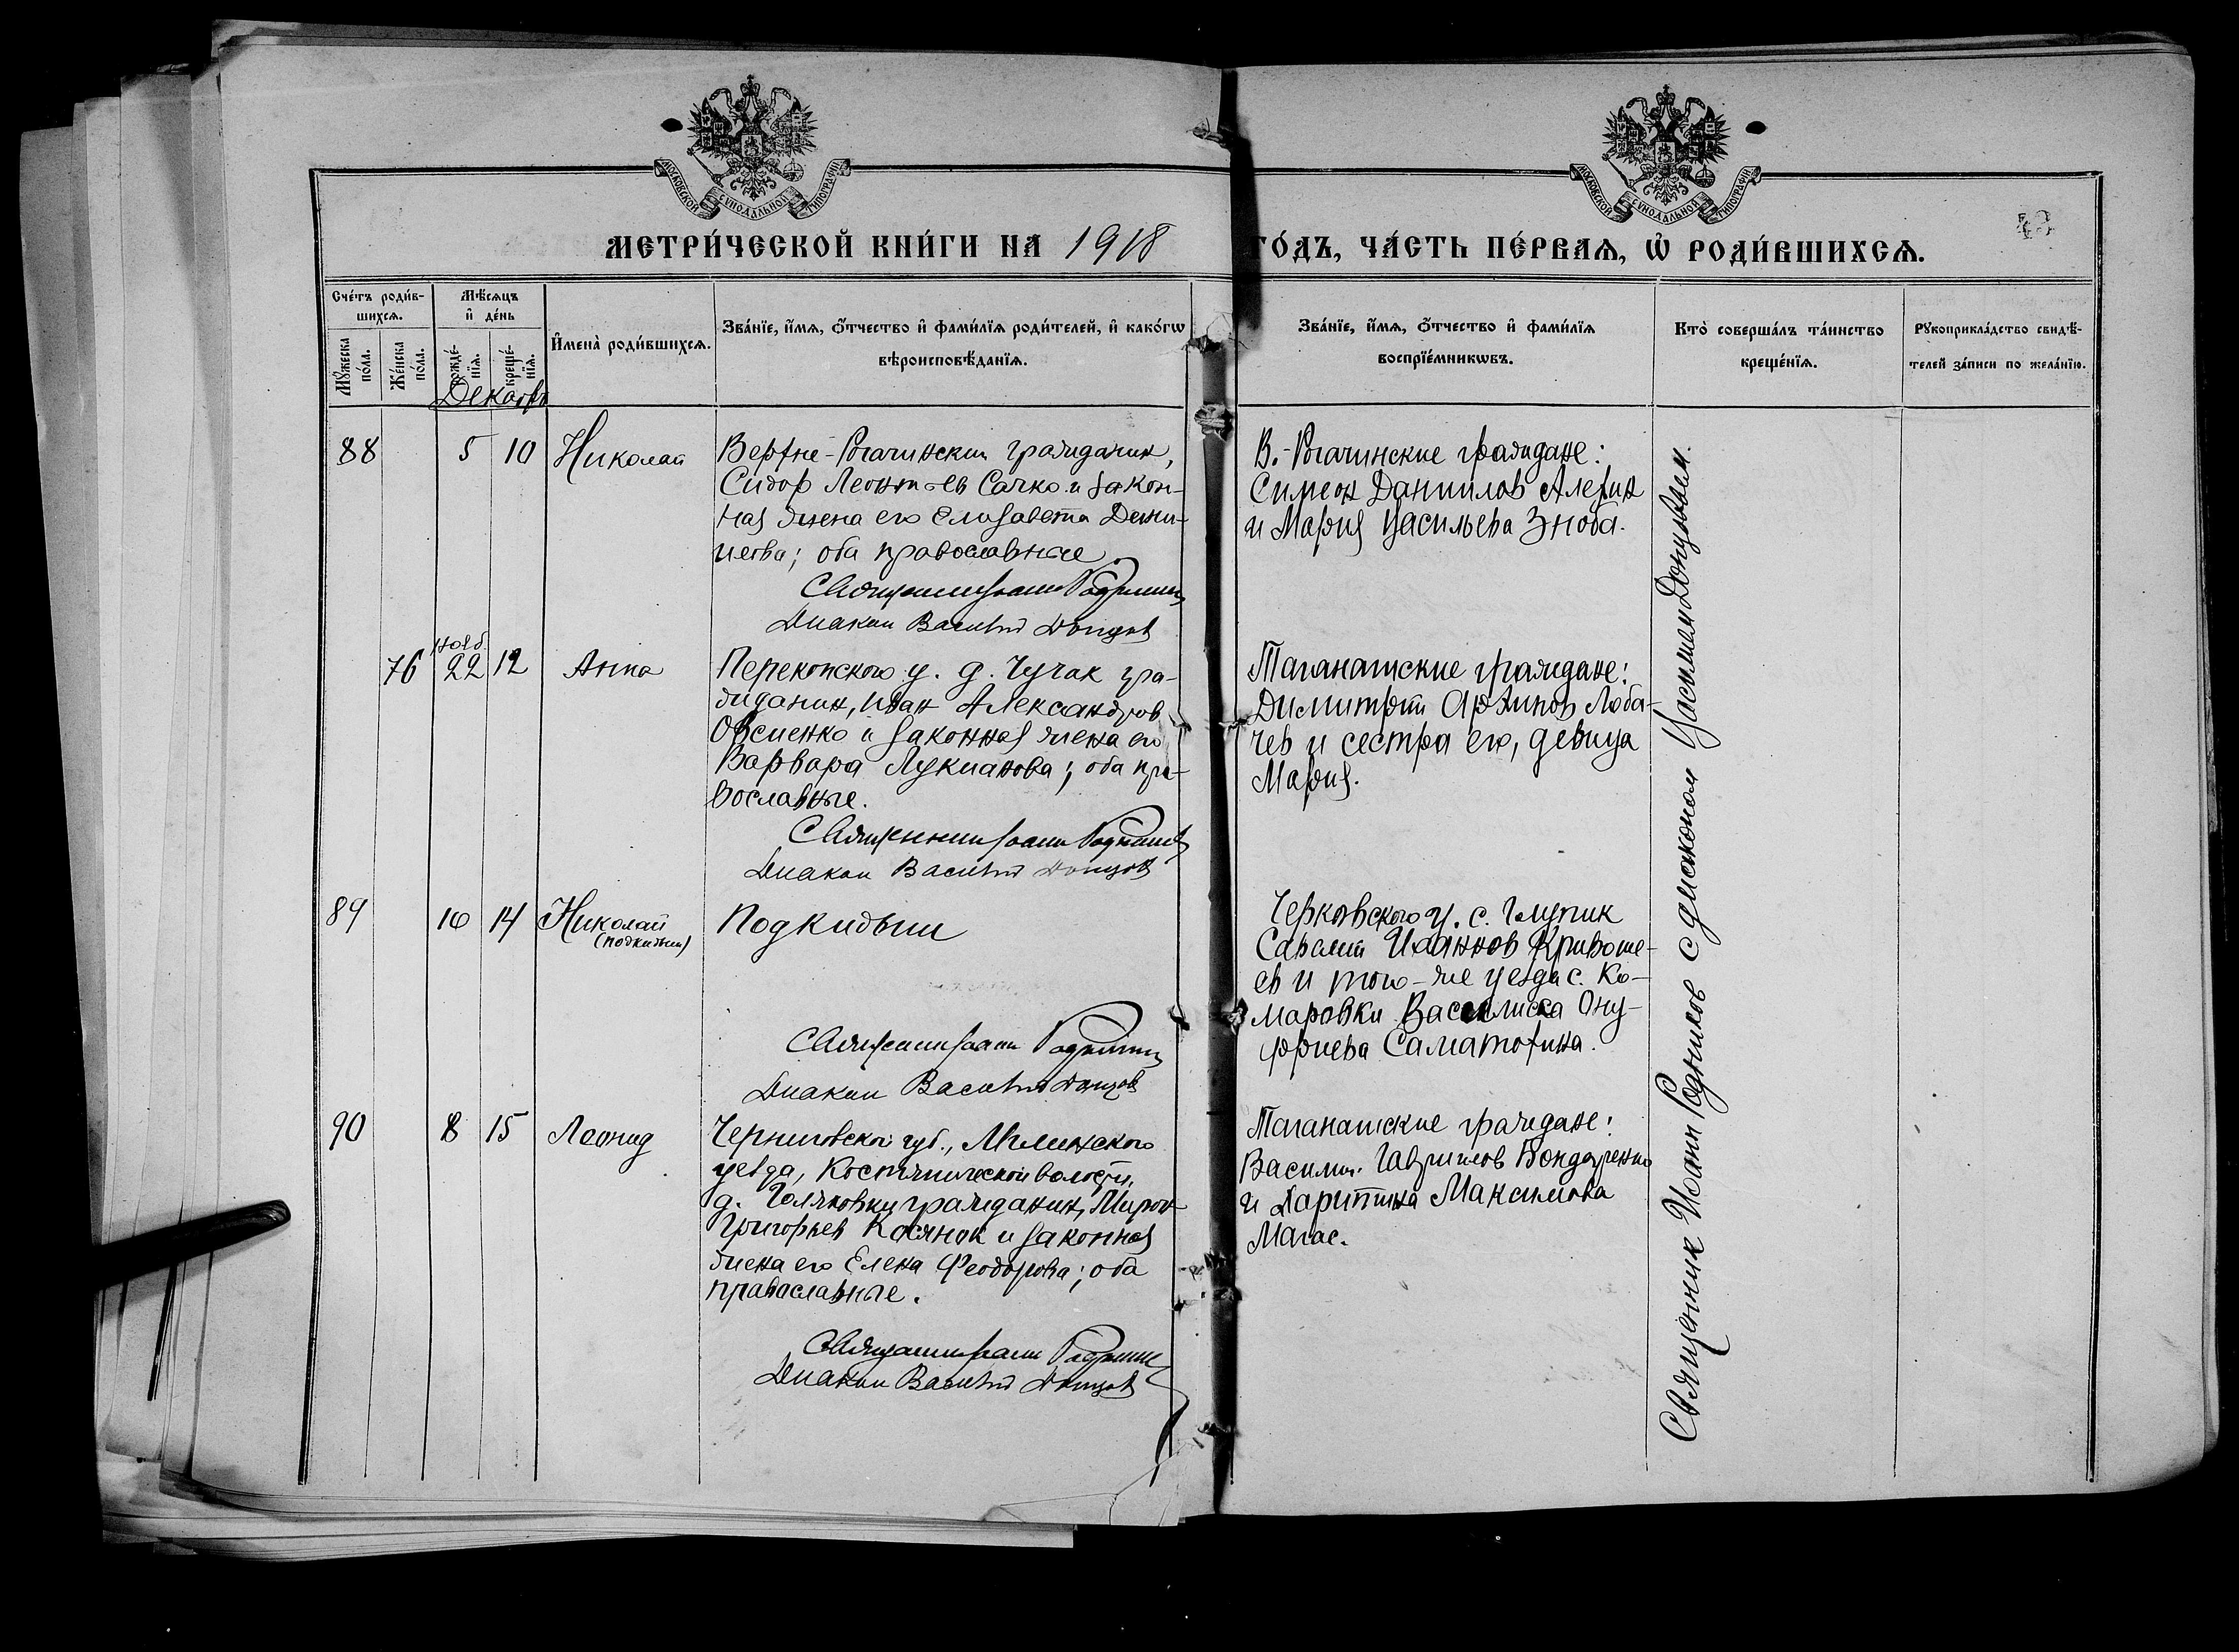 МОСКОВСКОЙ СѴНОДАЛЬНОЙ ТИПОГРАФІИ
МОСКОВСКОЙ СѴНОДАЛЬНОЙ ТИПОГРАФІИ
МЕТРИ́ЧЕСКОЙ КНИ́ГИ НА 1918
ГО́ДЪ, ЧА́СТЬ ПЕ́РВАѦ, Ѡ҆ РОДИ́ВШИХСѦ.
Сче́тъ роди́в-
шихсѧ.
Мѣ́сѧцъ
и҆ де́нь
Мꙋ́жеска по́ла.
Же́нска по́ла.
рожде́-нїѧ.
креще́-нїѧ.
И҆мена̀ роди́вшихсѧ.
Зва́нїе, и҆́мѧ, ѻ҆́тчество и҆ фами́лїѧ роди́телей, и҆ како́гѡ
вѣроисповѣ́данїѧ.
Зва́нїе, и҆́мѧ, ѻ҆́тчество и҆ фами́лїѧ
воспрїе́мникѡвъ.
Кто̀ соверша́лъ та́инство
креще́нїѧ.
Рꙋкоприкла́дство свидѣ́-
телей за́писи по жела́нїю.
Декабрь
88 5 10 Николай
Верхне-Рогачинский гражданин,
Сидор Леонтьев Сачко и закон-
ная жена его Елизавета Дени-
сова; оба православные
Священник Иоанн Родников
Диакон Василий Донцов
В.-Рогачинские граждане:
Симеон Даниилов Алехин
и Мария Васильева Зноба.
Нояб.
76 22 12 Анна
Перекопского у. д. Чучак гра-
жданин, Иван Александров
Овсиенко и законная жена его
Варвара Лукианова; оба пра-
вославные.
Священник Иоанн Родников
Диакон Василий Донцов
Таганашские граждане:
Димитрий Архипов Лоба-
чев и сестра его, девица
Мария.
89 10 14 Николай
(подкидыш)
Подкидыш
Священник Иоанн Родников
Диакон Василий Донцов
у. с.
Савелий Иоаннов Кривоше-
ев и того-же уезда с. Ко-
маровки Василисса Ону-
фриева Саматохина.
90 8 15 Леонид
Черниговской губ., Мглинского
уезда, волости,
д. гражданин, Мирон
Григорьев Косянок и законная
жена его Елена Феодорова; оба
православные.
Священник Иоанн Родников
Диакон Василий Донцов
Таганашские граждане:
Василий Гавриилов Бондаренко
и Харитина Максимова
Магас.
Священник Иоанн Родников с диаконом Василием Донцовым.